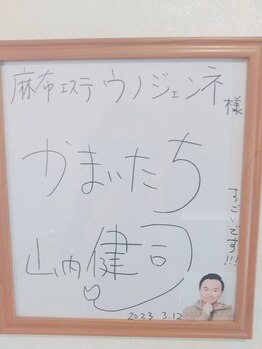 麻布エステウノジェンネ様
かまいたち
すごいです!!!
山内健司
2023.3.12